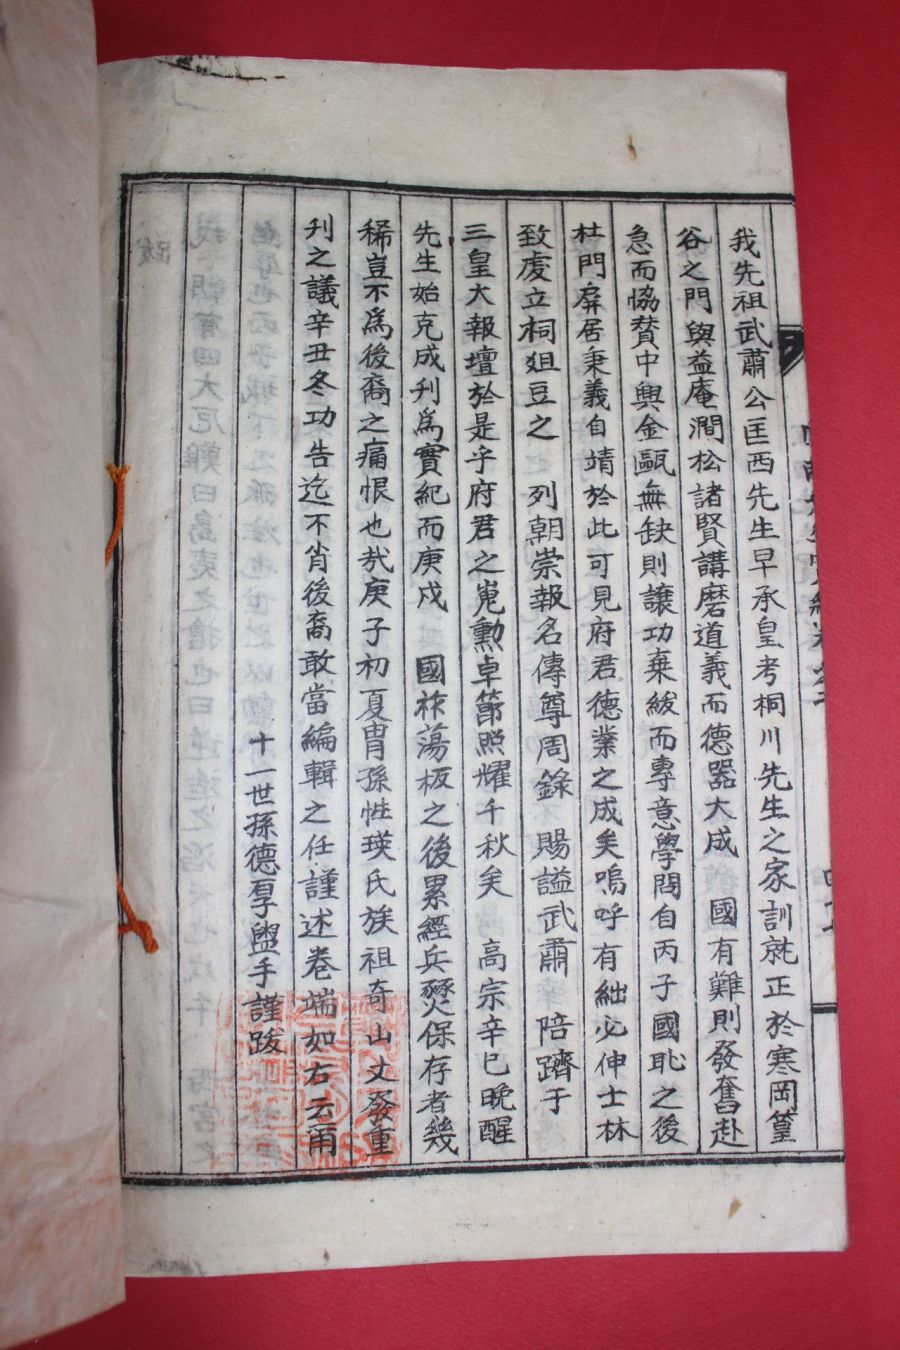 我先祖武肅公匡西先生早承皇考桐川先生之家訓就正於寒岡篁
谷之門與益庵澗松諸賢講磨道義而德器大成 國有難則發奮赴
急而恊賛中興金甌無缺則讓功棄綬而專意學問自丙子國恥之後
杜門屏居秉義自靖於此可見府君德業之成矣嗚呼有絀必伸士林
致虔立桐俎豆之 列朝崇報名傳尊周錄 賜謚武肅 陪躋于
三皇大報壇於是乎府君之嵬勳卓節照耀千秋矣 高宗辛巳晩醒
先生始克成刋爲實紀而庚戍 國祚蕩板之後累經兵燹保存者幾
稀豈不爲後裔之痛恨也㢤庚子初夏冑孫性瑛氏族祖奇山丈發重
刋之議辛丑冬功告迄不肖後裔敢當編輯之任謹述卷端如右云爾
十一世孫德厚盥手謹跋